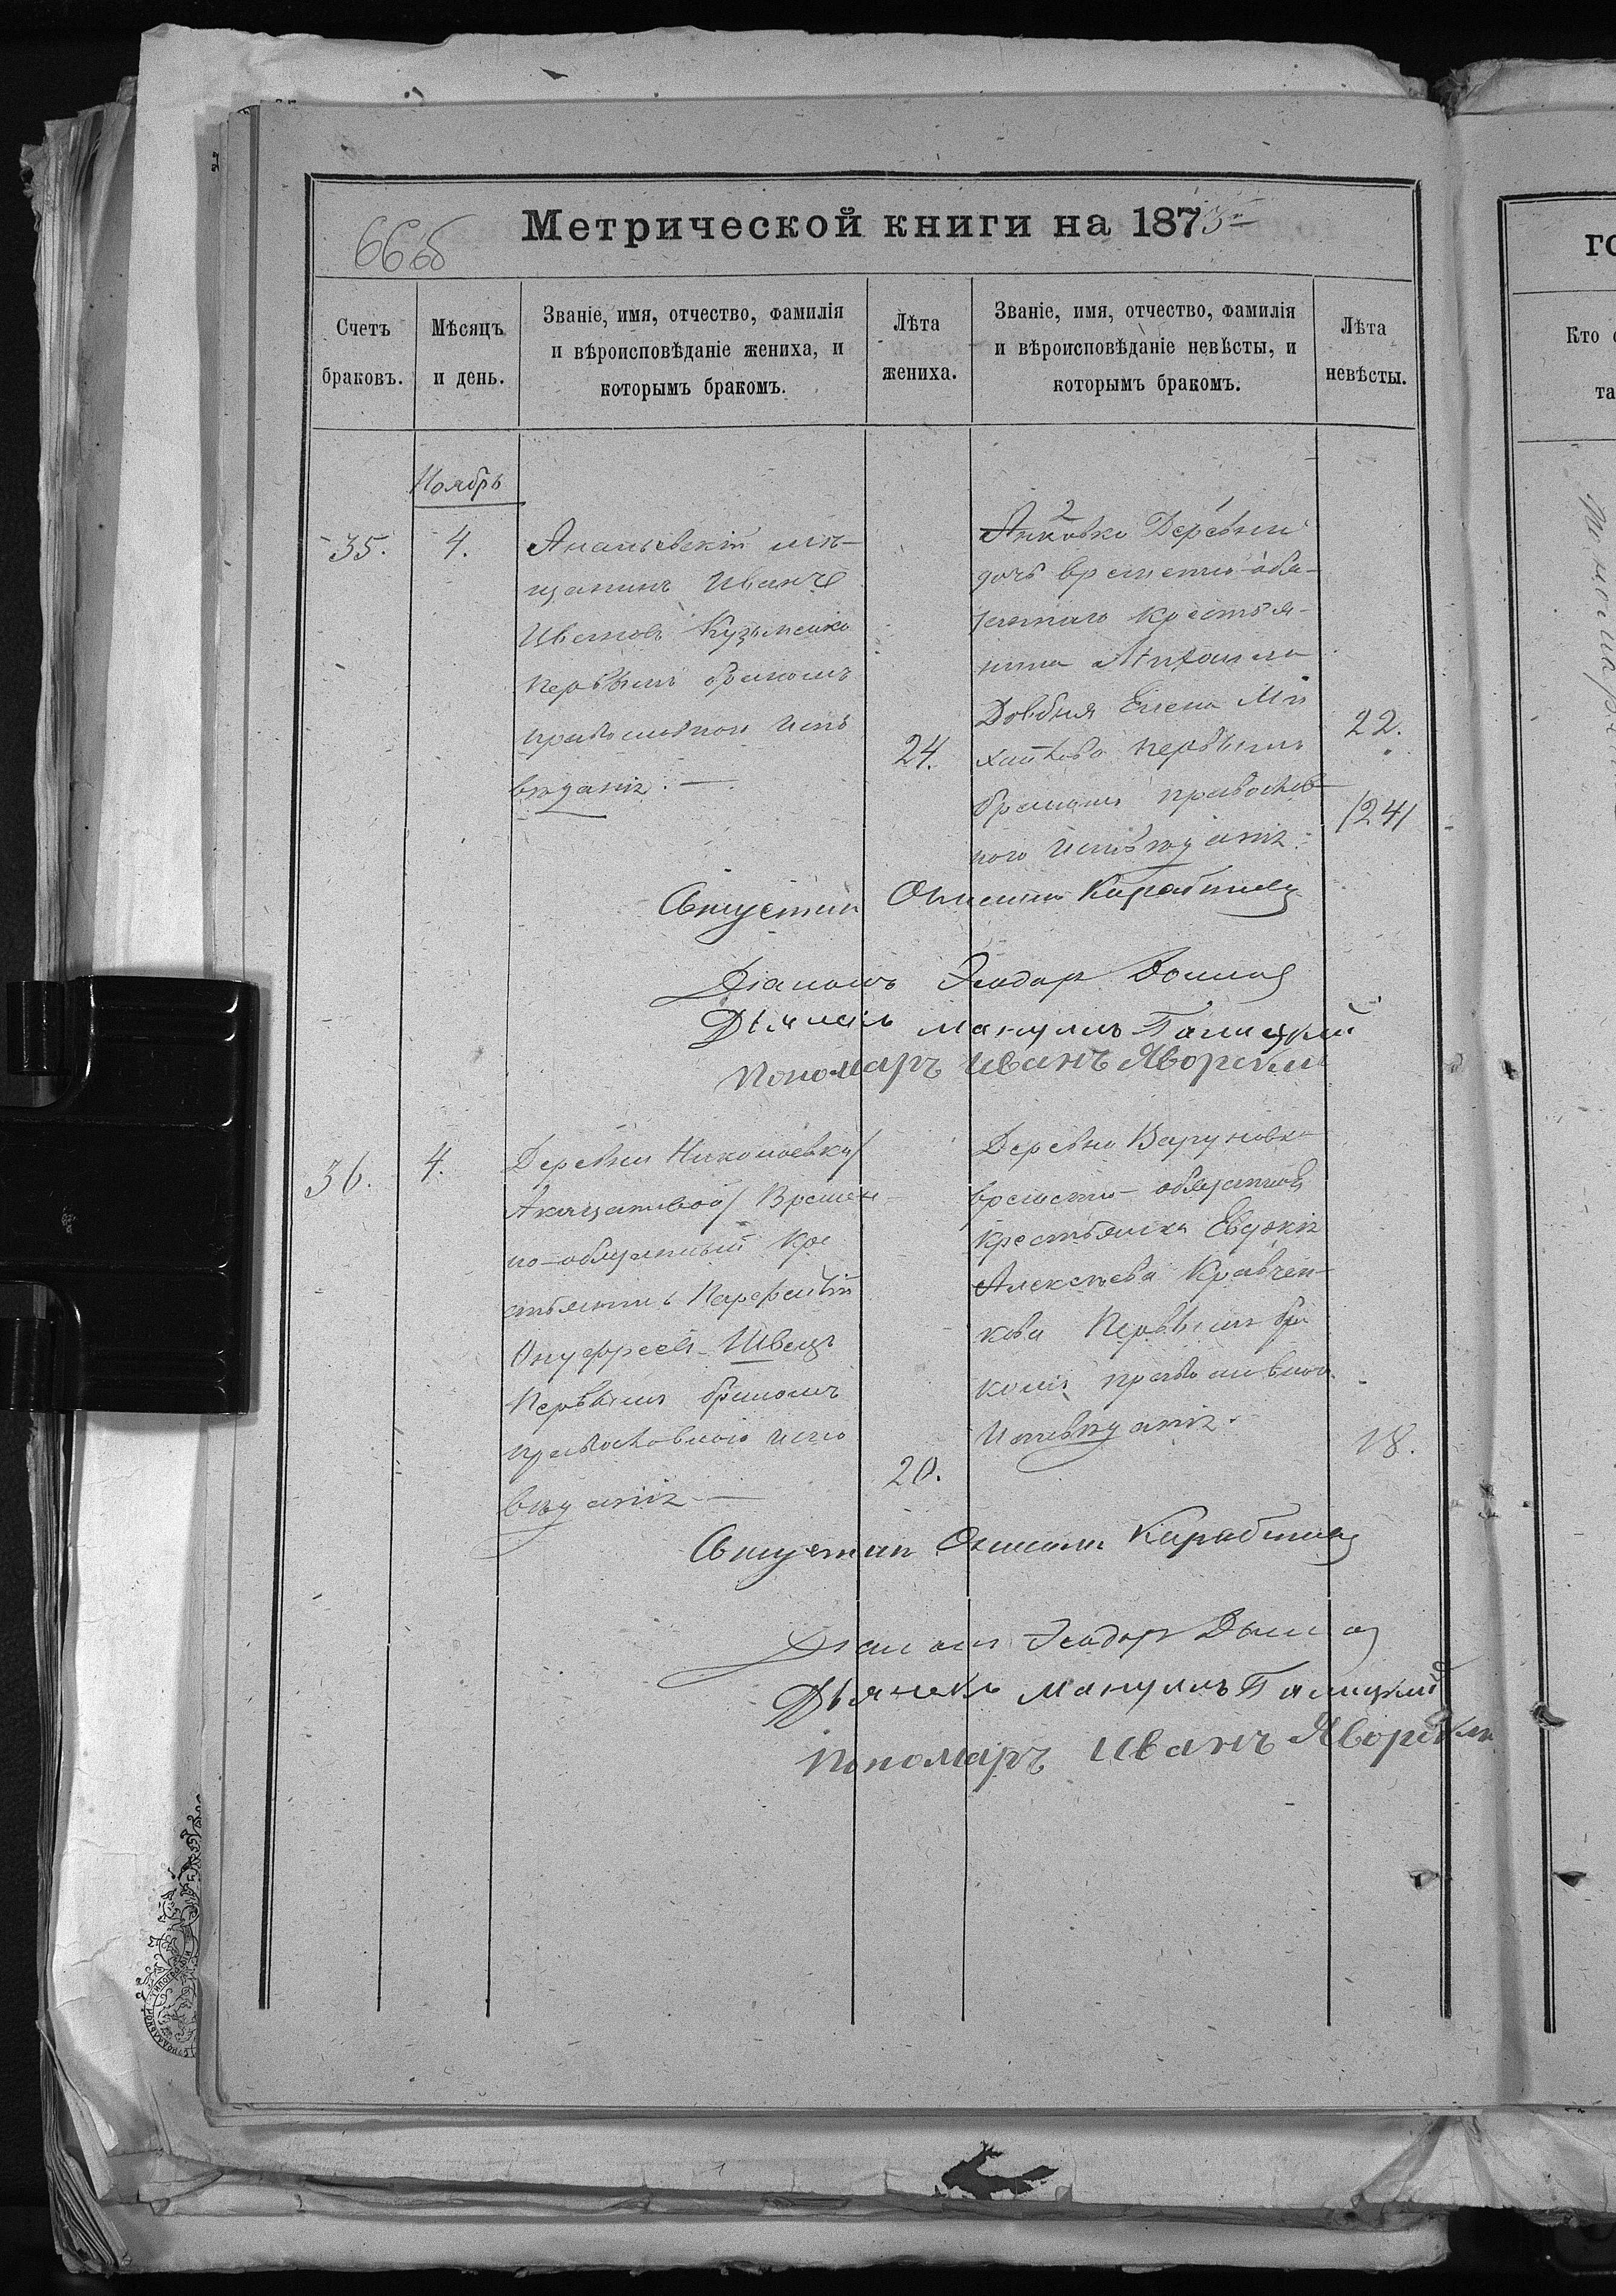 Метрической книги на 1873й
66об
Счетъ браковъ.
Мѣсяцъ и день.
Званіе, имя, отчество, фамилія и вѣроисповѣданіе жениха, и которымъ бракомъ.
Лѣта жениха.
Званіе, имя, отчество, фамилія и вѣроисповѣданіе невѣсты, и которымъ бракомъ.
Лѣта невѣсты.
Ноябрь
35.
4.
Ананьевскій мѣ-
щанинъ Иванъ
Ивановъ Кузьменко
первымъ бракомъ
православнои испо
вѣданія. —
24.
Анновко Деревни
дочь временно-обя-
занаго крестья-
нина
Довбня Елена Ми
хайлова первымъ
бракомъ православ
ного исповѣданія.
22.
/24/
Священникъ
Діаконъ Ѳеодоръ
Дьячекъ Мануилъ Галицкій
Пономарь Иванъ Яворскій
36.
4.
Деревни Николаевки/
Акацатовой/ Времен-
но-обязанный Кре
стьянинъ Парфеній
Онуфріевъ Швецъ
Первымъ бракомъ
православного испо
вѣданія —
20.
Деревни Варуновка
временно-обязанной
Крестьянка Евдокія
Алексѣева Кравчен-
кова Первымъ бра
комъ православного
Исповѣданія.
18.
Священникъ
Діаконъ Ѳеодоръ
Дьячекъ Мануилъ Галицкій
Пономарь Иванъ Яворскій
го
Кто
та